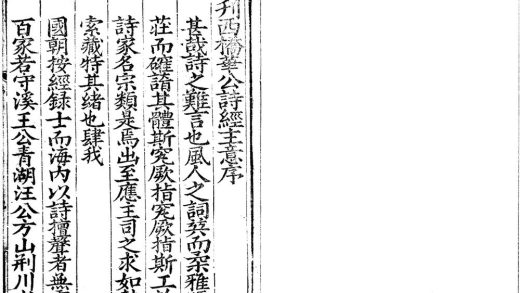 刋西橋華公詩經主意序
甚哉詩之難言也風人之詞葩而柔雅
莊而確謟其體斯究厥指究厥指斯工
詩家名宗類是焉出至應主司之求如
索藏特其緒也肆我
國朝按經録士而海內以詩擅聲者無
百家若守溪王公青湖汪公方山荆川